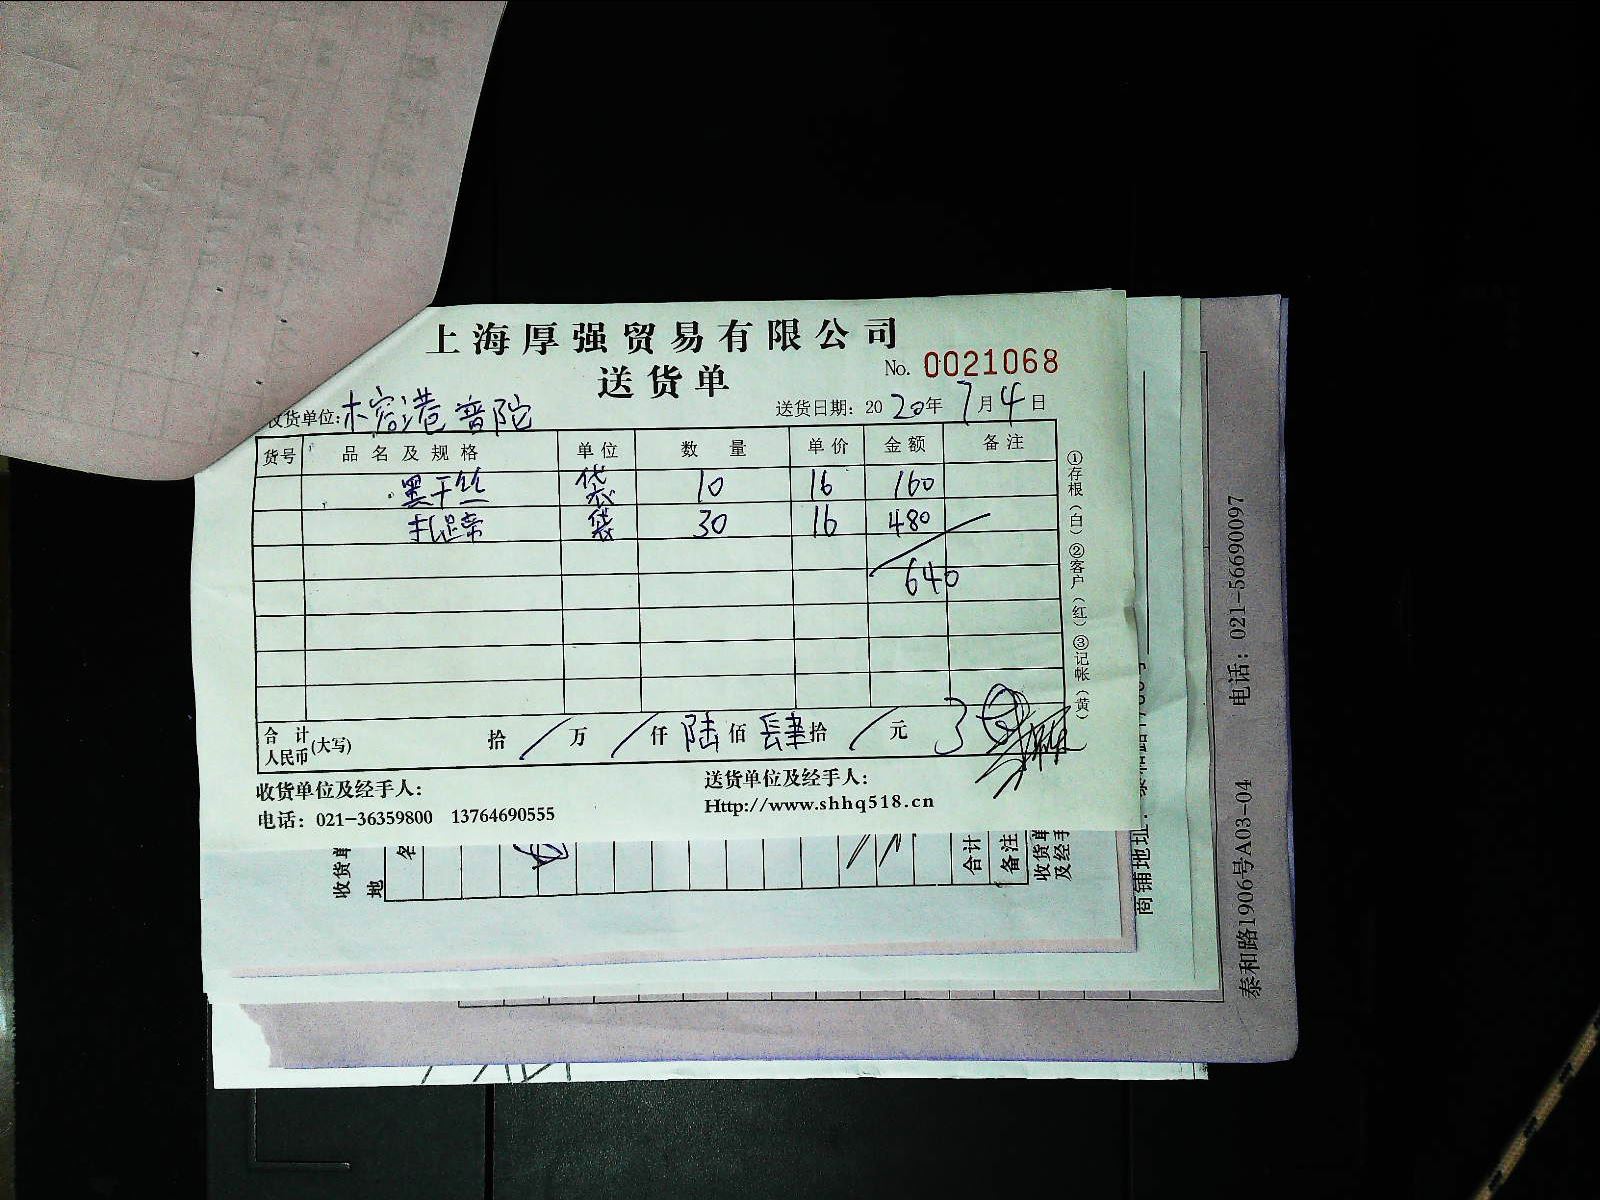 上海厚强贸易有限公司
送货单
No. 0021068
收货单位:木容港 普陀
送货日期: 2020年7月4日
货号 品名及规格 单位 数量 单价 金额 备注
黑干丝 袋 10 16 160
袋 30 16 480
640
合计人民币(大写) 拾/万/仟陆佰肆拾/元
收货单位及经手人:
送货单位及经手人:
电话: 021-36359800 13764690555
Http://www.shhq518.cn
①存根(白)②客户(红)③记帐(黄)
收货单
地
名
合计
备注
收货单
及经手
商铺地址:
泰和路1906号A03-04 电话: 021-56690097